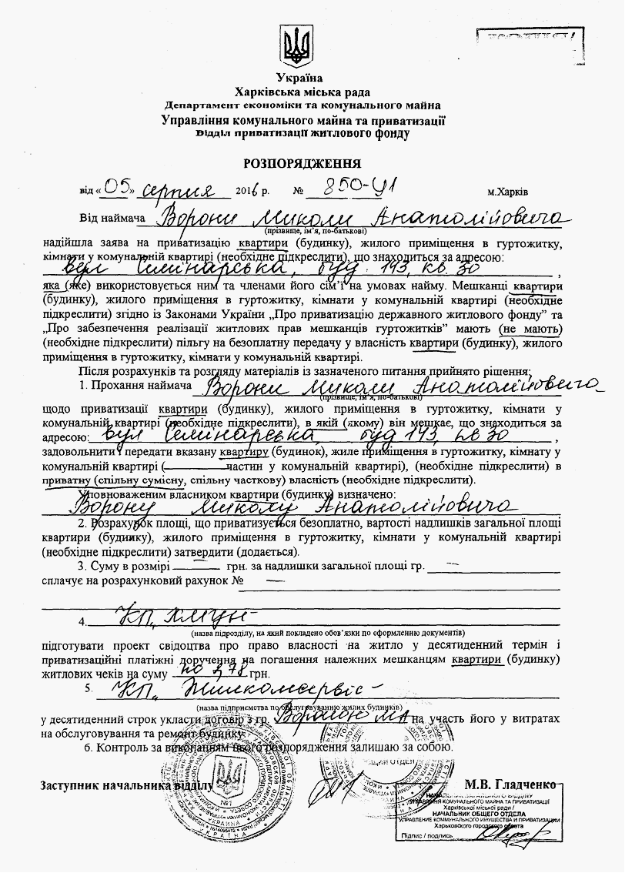 Україна
Харківська міська рада
Департамент економіки та комунального майна
Управління комунального майна та приватизації
Відділ приватизації житлового фонду
РОЗПОРЯДЖЕННЯ
від «05» серпня 2016 р. № 850-Ч1 м.Харків
Від наймача Ворони Миколи Анатолійовича
(прізвище, ім'я, по-батькові)
надійшла заява на приватизацію квартири (будинку), жилого приміщення в гуртожитку,
кімнати у комунальній квартирі (необхідне підкреслити), що знаходиться за адресою:
вул Семінарська, буд. 143, кв. 30 ,
яка (яке) використовується ним та членами його сім'ї на умовах найму. Мешканці квартири
(будинку), жилого приміщення в гуртожитку, кімнати у комунальній квартирі (необхідне
підкреслити) згідно із Законами України „Про приватизацію державного житлового фонду" та
„Про забезпечення реалізації житлових прав мешканців гуртожитків" мають (не мають)
(необхідне підкреслити) пільгу на безоплатну передачу у власність квартири (будинку), жилого
приміщення в гуртожитку, кімнати у комунальній квартирі.
Після розрахунків та розгляду матеріалів із зазначеного питання прийнято рішення:
1. Прохання наймача Ворони Миколи Анатолійовича
(прізвище, ім'я, по-батькові)
щодо приватизації квартири (будинку), жилого приміщення в гуртожитку, кімнати у
комунальній квартирі (необхідне підкреслити), в якій (якому) він мешкає, що знаходиться за
адресою: вул Семінарська буд 143, кв 30 ,
задовольнити і передати вказану квартиру (будинок), жиле приміщення в гуртожитку, кімнату у
комунальній квартирі (— частин у комунальній квартирі), (необхідне підкреслити) в
приватну (спільну сумісну, спільну часткову) власність (необхідне підкреслити).
Уповноваженим власником квартири (будинку) визначено:
Ворону Миколу Анатолійовича
2. Розрахунок площі, що приватизується безоплатно, вартості надлишків загальної площі
квартири (будинку), жилого приміщення в гуртожитку, кімнати у комунальній квартирі
(необхідне підкреслити) затвердити (додається).
3. Суму в розмірі — грн. за надлишки загальної площі гр. —
сплачує на розрахунковий рахунок № —
4. КП „ХМБТІ"
(назва підрозділу, на який покладено обов'язки по оформленню документів)
підготувати проект свідоцтва про право власності на житло у десятиденний термін і
приватизаційні платіжні доручення на погашення належних мешканцям квартири (будинку)
житлових чеків на суму грн.
5. КП „Жилкомсервіс"
(назва підприємства по обслуговуванню жилих будинків)
у десятиденний строк укласти договір з гр. Вороною МА на участь його у витратах
на обслуговування та ремонт будинку.
6. Контроль за виконанням цього розпорядження залишаю за собою.
Заступник начальника відділу М.В. Гладченко
УПРАВЛІННЯ КОМУНАЛЬНОГО МАЙНА ТА ПРИВАТИЗАЦІЇ
Харківської міської ради /
НАЧАЛЬНИК ОБЩЕГО ОТДЕЛА
УПРАВЛЕНИЕ КОММУНАЛЬНОГО ИМУЩЕСТВА И ПРИВАТИЗАЦИИ
Харьковского городского совета
Підпис / подпись